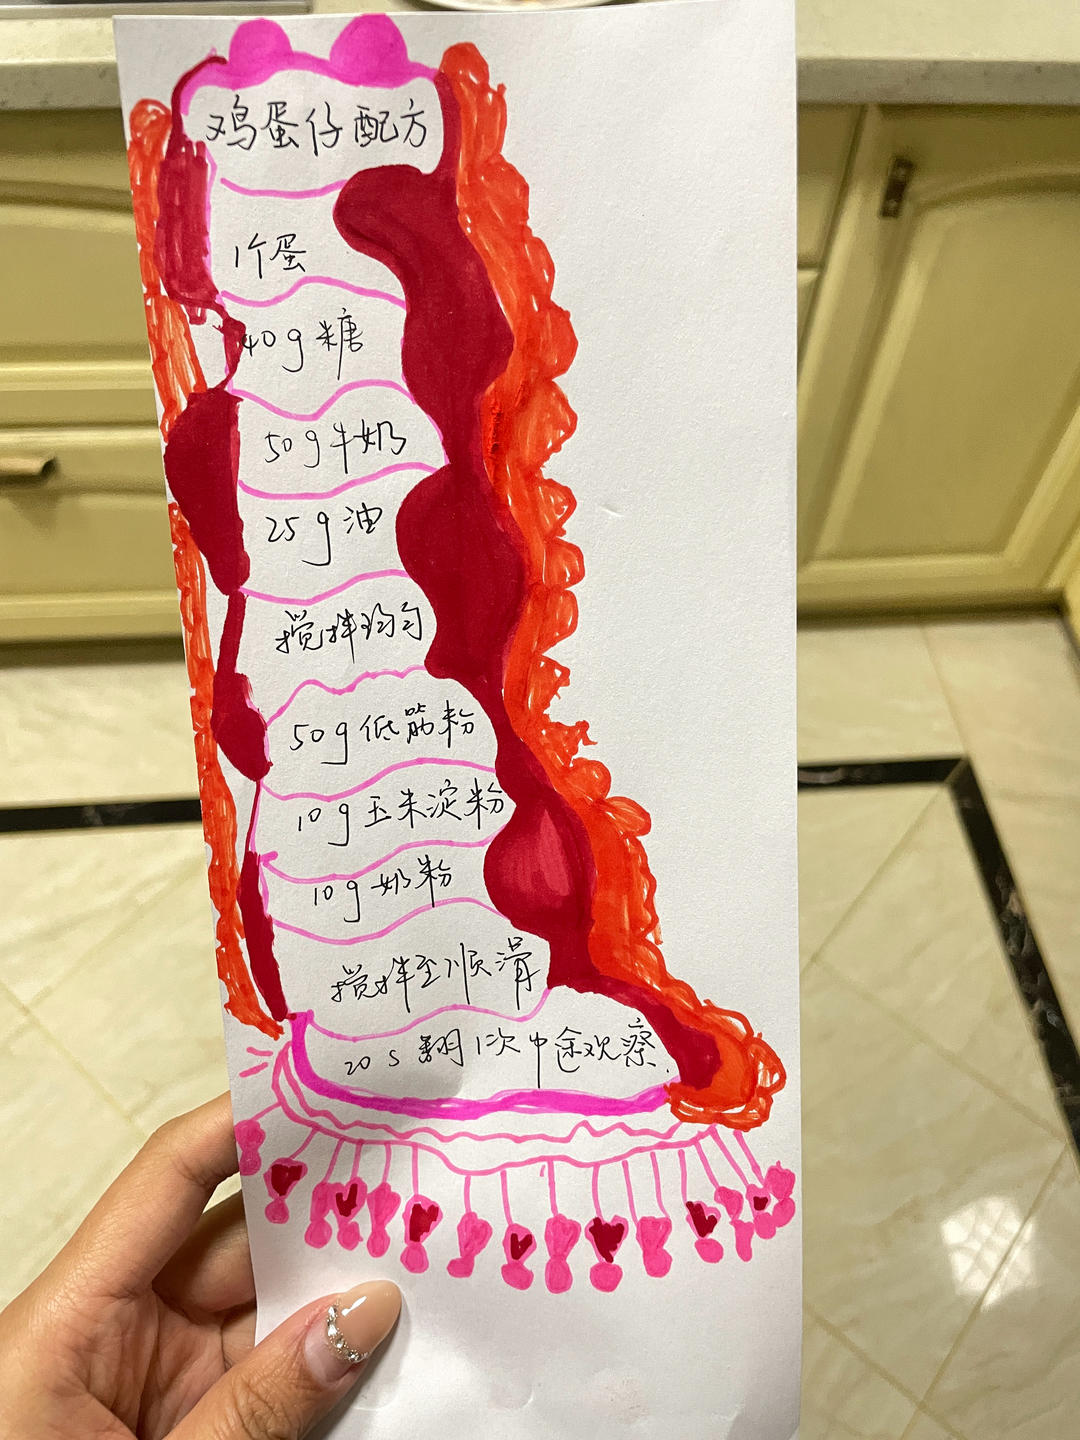 鸡蛋仔配方
1个蛋
40g糖
50g牛奶
25g油
搅拌均匀
50g低筋粉
10g玉米淀粉
10g奶粉
搅拌至顺滑
20s翻1次中途观察.